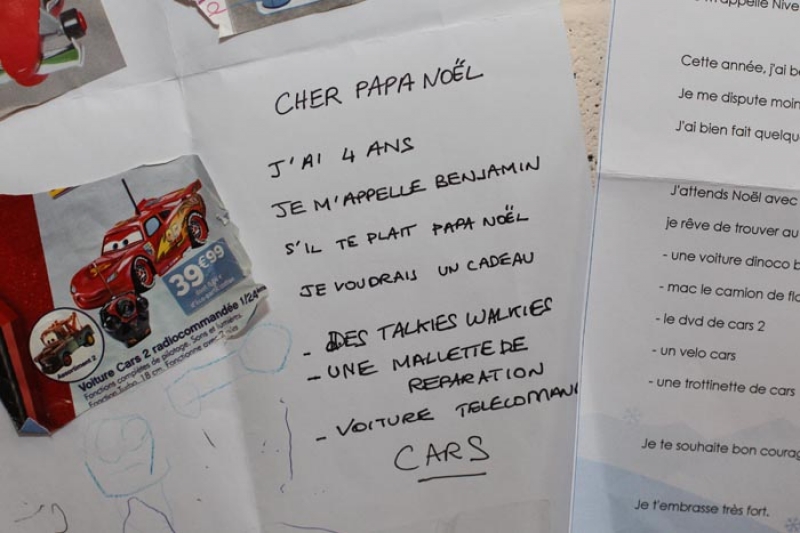 CHER PAPA NOËL
J'AI 4 ANS
JE M'APPELLE BENJAMIN
S'IL TE PLAIT PAPA NOËL
JE VOUDRAIS UN CADEAU
- DES TALKIES WALKIES
- UNE MALLETTE DE
REPARATION
- VOITURE TELECOMAN
CARS
39€99
Assortiment 2
Voiture Cars 2 radiocommandée 1/24
Fonctions complètes de pilotage. Sons et lumières.
Fonction Turbo. 18 cm. Fonctionne avec
m'appelle Nive
Cette année, j'ai b
Je me dispute moin
J'ai bien fait quelqu
J'attends Noël avec
je rêve de trouver au
- une voiture dinoco b
- mac le camion de fl
- le dvd de cars 2
- un velo cars
- une trottinette de cars
Je te souhaite bon courag
Je t'embrasse très fort.